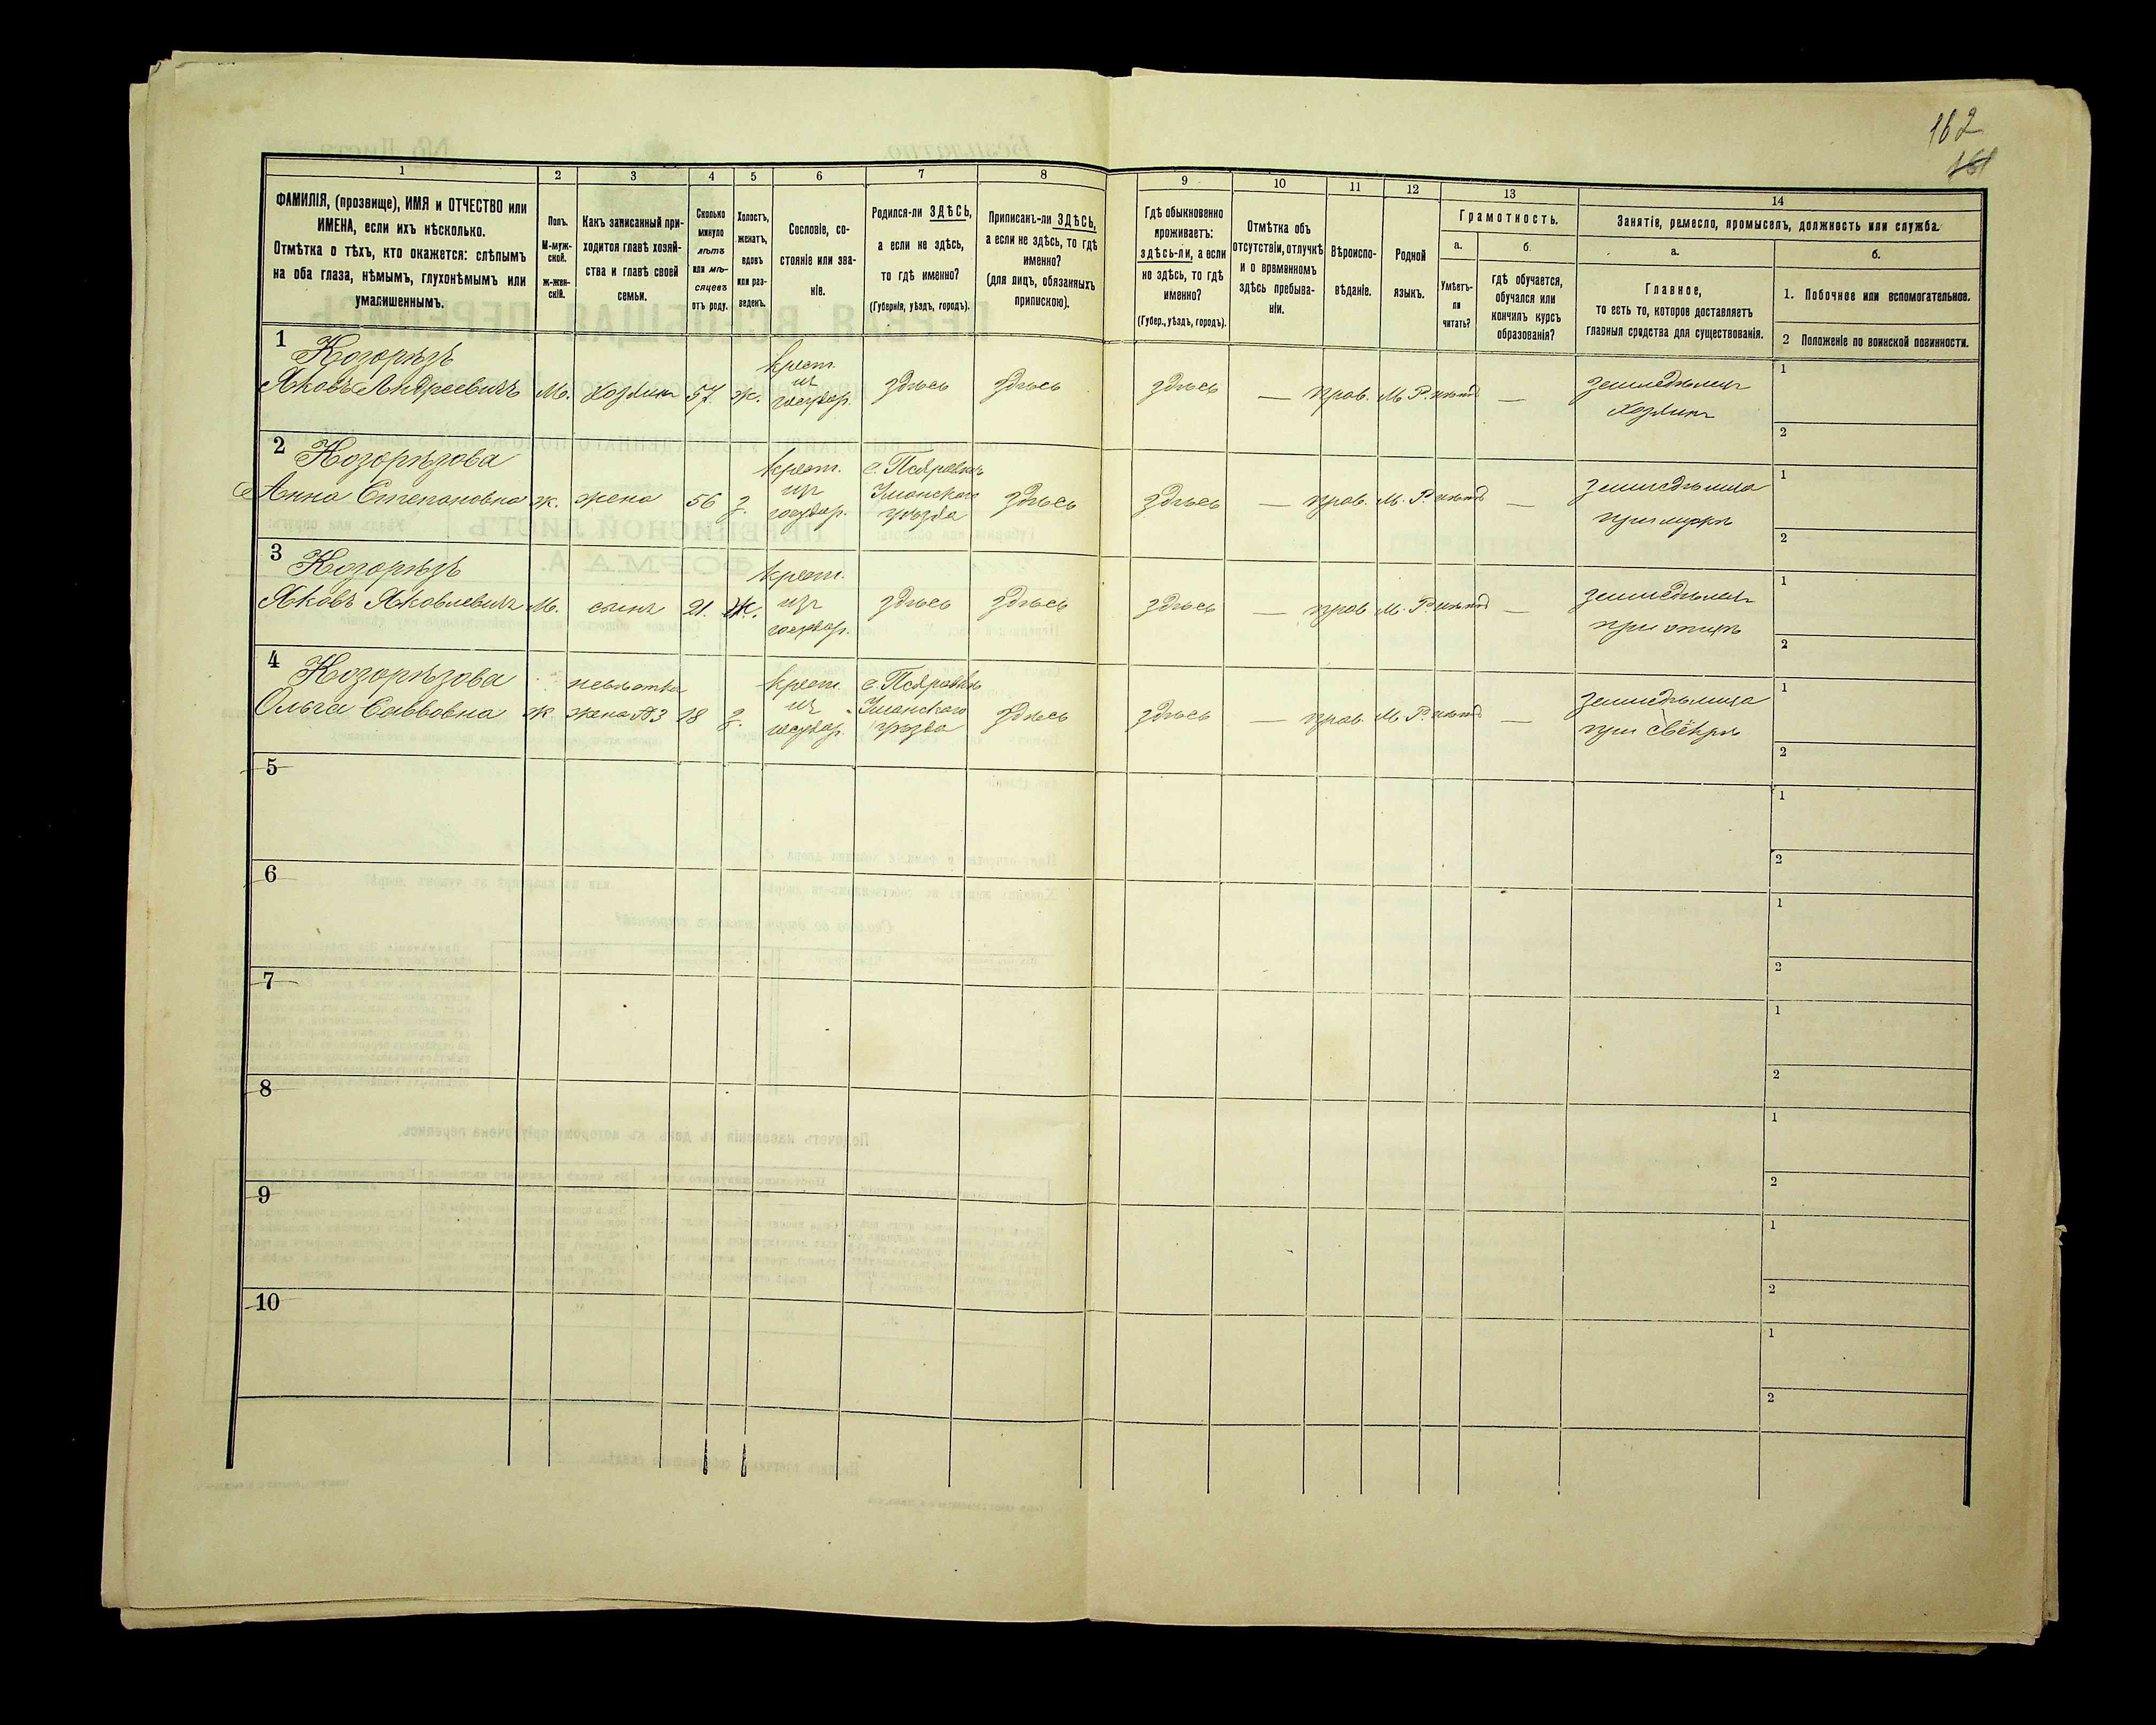 162
161
1 2 3 4 5 6 7 8 9 10 11 12 13 14
ФАМИЛІЯ, (прозвище), ИМЯ и ОТЧЕСТВО или
ИМЕНА, если ихъ нѣсколько.
Отмѣтка о тѣхъ, кто окажется: слѣпымъ
на оба глаза, нѣмымъ, глухонѣмымъ или
умалишеннымъ.
Полъ.
М-муж-
ской.
Ж-жен-
скій.
Какъ записанный при-
ходится главѣ хозяй-
ства и главѣ своей
семьи.
Сколько
минуло
лѣтъ
или мѣ-
сяцевъ
отъ роду.
Холостъ,
женатъ,
вдовъ
или раз-
веденъ.
Сословіе, со-
стояніе или зва-
ніе.
Родился-ли ЗДѢСЬ,
а если не здѣсь,
то гдѣ именно?
(Губернія, уѣздъ, городъ).
Приписанъ-ли ЗДѢСЬ,
а если не здѣсь, то гдѣ
именно?
(для лицъ, обязанныхъ
припискою).
Гдѣ обыкновенно
проживаетъ:
здѣсь-ли, а если
не здѣсь, то гдѣ
именно?
(Губер., уѣздъ, городъ).
Отмѣтка объ
отсутствіи, отлучкѣ
и о временномъ
здѣсь пребыва-
ніи.
Вѣроиспо-
вѣданіе.
Родной
языкъ.
Грамотность.
а.
Умѣетъ-
ли
читать?
б.
гдѣ обучается,
обучался или
кончилъ курсъ
образованія?
Занятіе, ремесло, промыселъ, должность или служба.
а.
Главное,
то есть то, которое доставляетъ
главныя средства для существованія.
б.
1. Побочное или вспомогательное.
2 Положеніе по воинской повинности.
1 Козорѣзъ
Яковъ Андреевичъ М. хозяинъ 57 ж. крест. изъ государ. здѣсь здѣсь здѣсь — прав. М. Р. нѣтъ — земледѣлецъ
хозяинъ
1
2
2 Козорѣзова
Анна Степановна ж. жена 56 з. крест. изъ государ. Уманскаго уѣзда здѣсь здѣсь — прав. М. Р. нѣтъ — земледѣлица
при мужѣ
1
2
3 Козорѣзъ
Яковъ Яковлевичъ М. сынъ 21. Ж. крест. изъ государ. здѣсь здѣсь здѣсь — прав. М. Р. нѣтъ — земледѣлецъ
при отцѣ
1
2
4 Козорѣзова невѣстка
Ольга Саввовна ж. жена №3 18 з. крест. изъ государ. Уманскаго уѣзда здѣсь здѣсь — прав. М. Р. нѣтъ — земледѣлица
при свёкрѣ
1
2
5
1
2
6
1
2
7
1
2
8
1
2
9
1
2
10
1
2